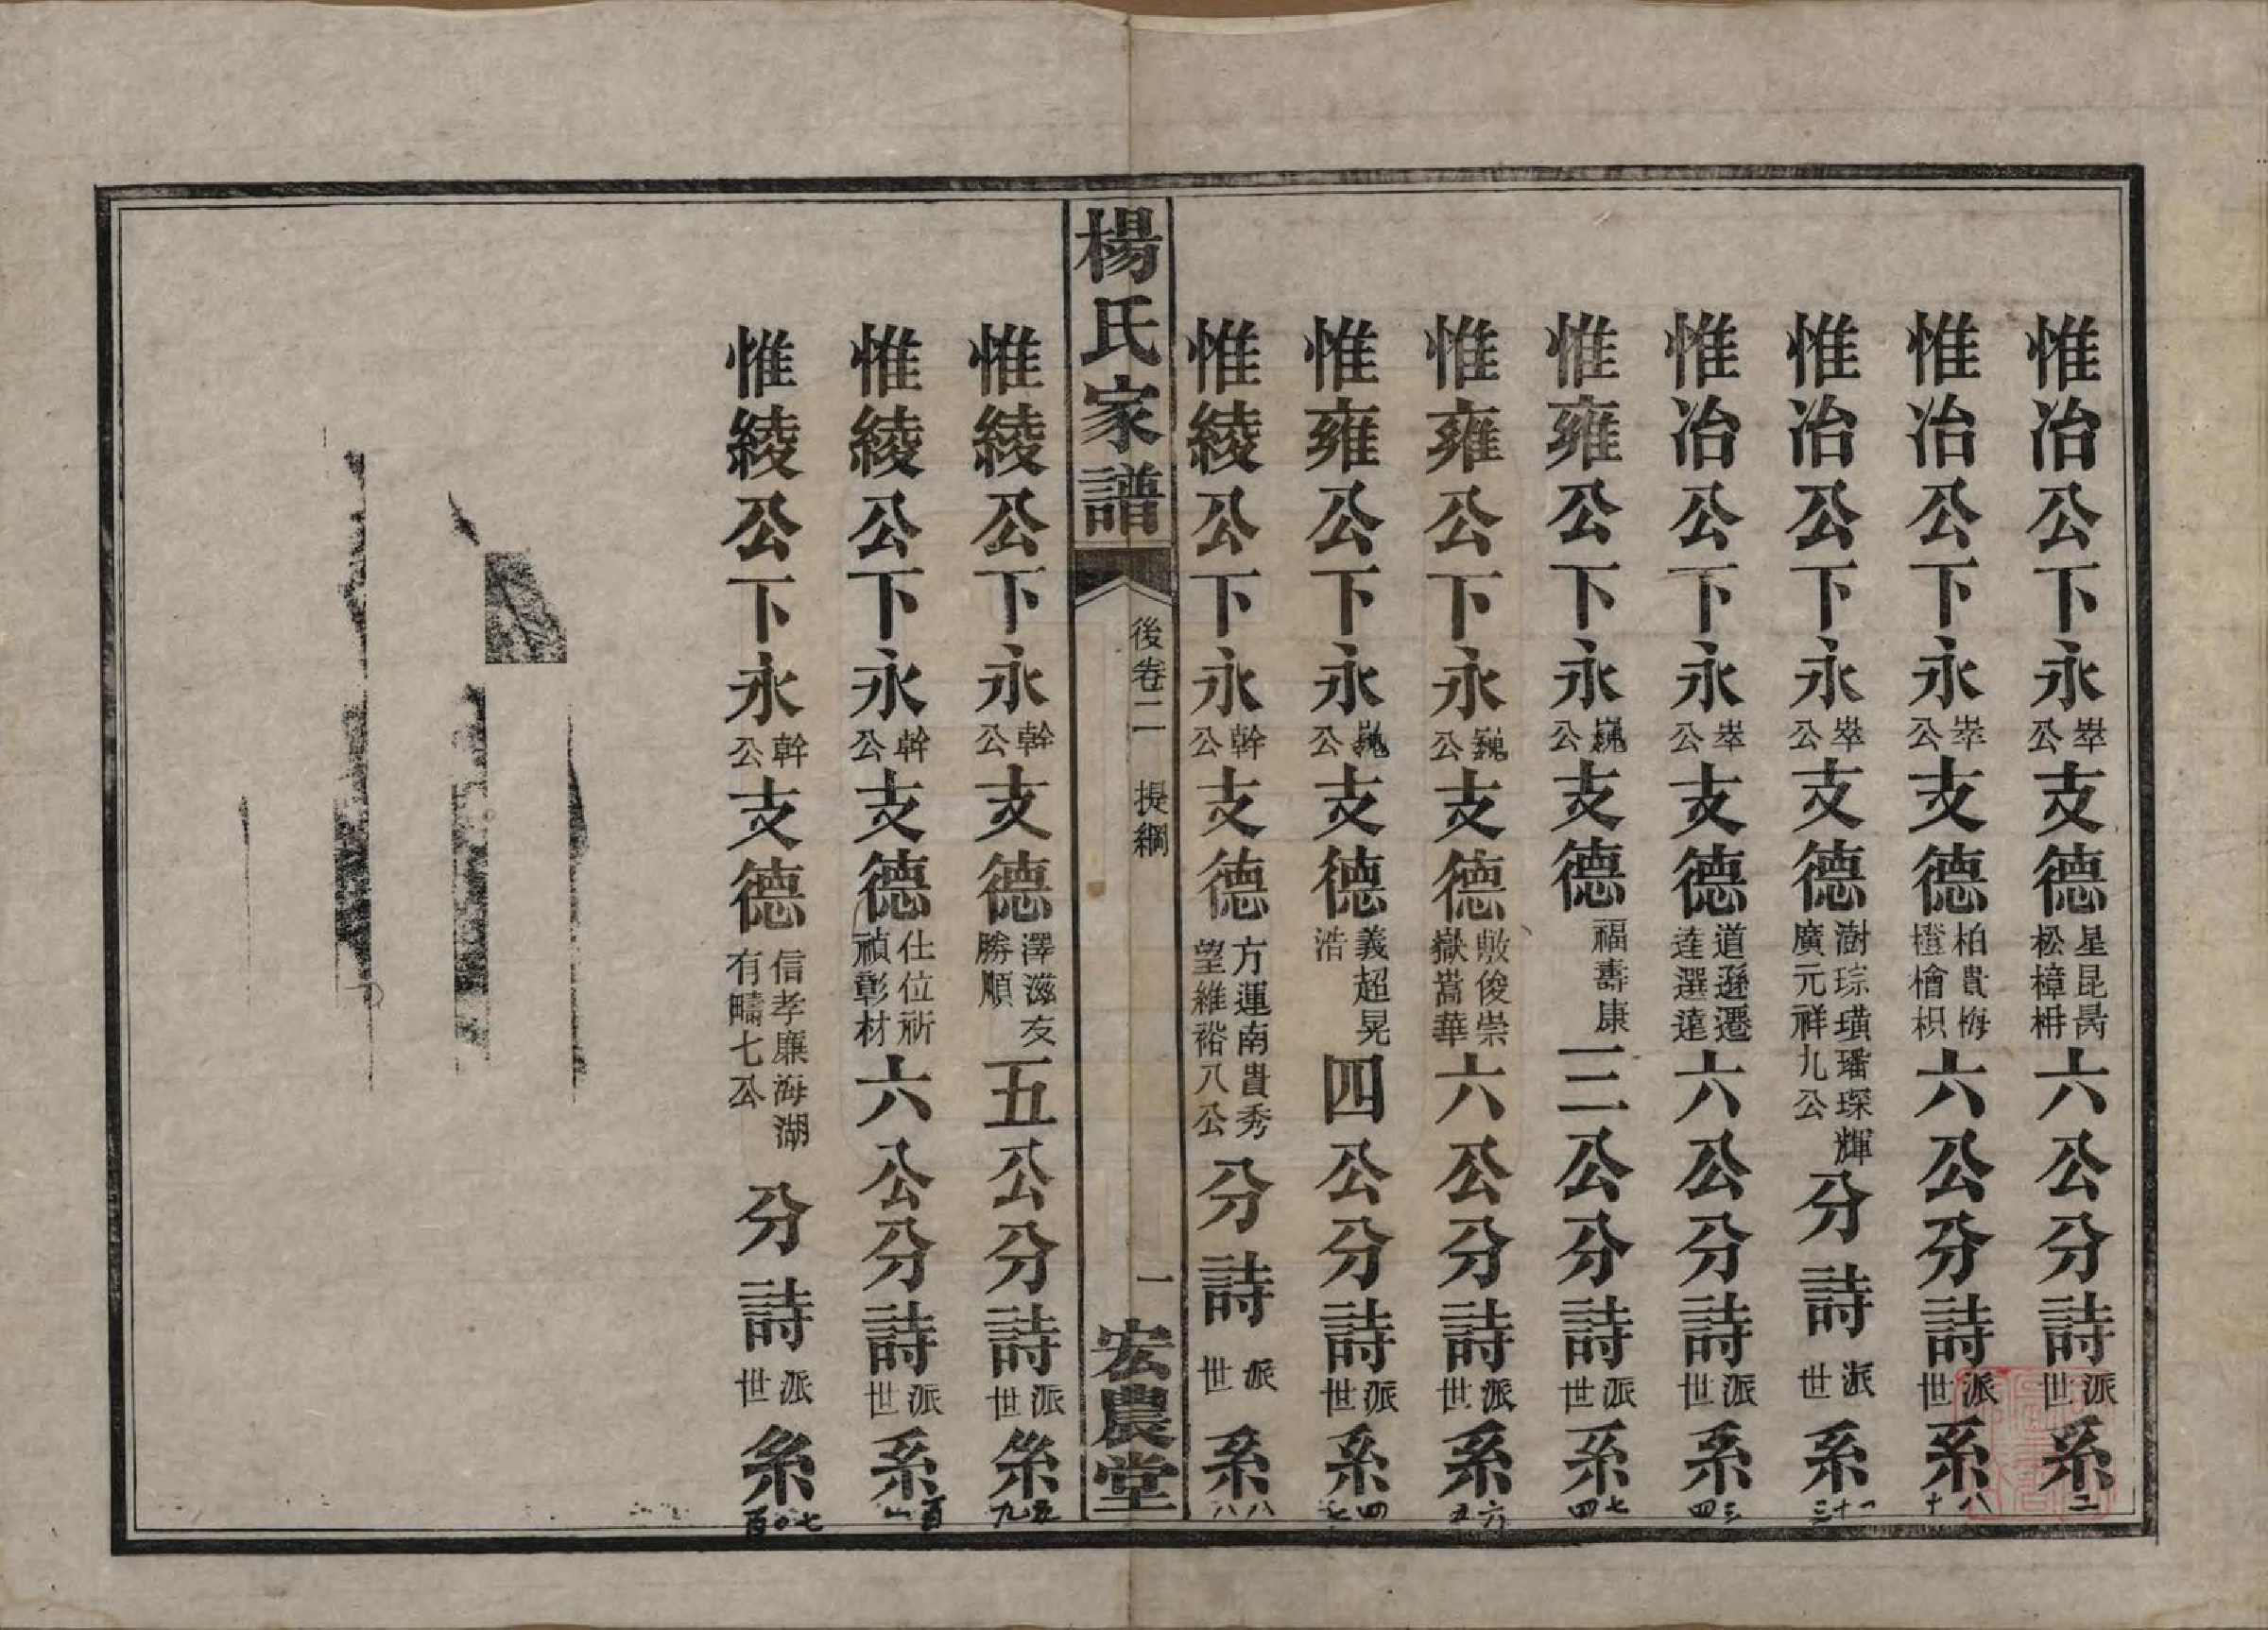 惟冶公下永崒公支德星昆昺松樟枏六公分詩派世系二
惟冶公下永崒公支德柏貴梅橙檜枳六公分詩派世系十八
惟冶公下永崒公支德澍琮璜璠琛輝廣元祥九公分詩派世系十一三
惟冶公下永崒公支德道遜遷達選遠六公分詩派世系三四
惟雍公下永巍公支德福壽康三公分詩派世系七四
惟雍公下永巍公支德敭俊崇嶽嵩華六公分詩派世系六五
惟雍公下永巍公支德義超晃浩四公分詩派世系四七
惟綾公下永幹公支德方運南貴秀望維裕八公分詩派世系八八
楊氏家譜 後卷二 提綱 一 宏農堂
惟綾公下永幹公支德澤滋友勝順五公分詩派世系五九
惟綾公下永幹公支德仕位祈禎彰材六公分詩派世系百一
惟綾公下永幹公支德信孝廉海湖有疇七公分詩派世系百〇七